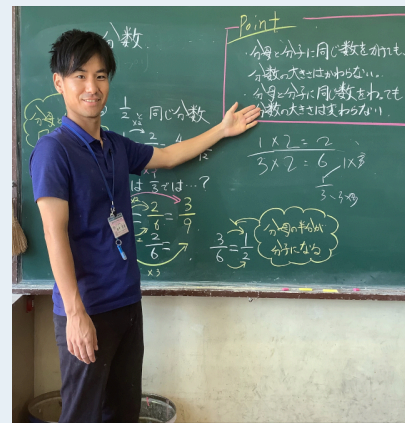 分数
Point
・分母と分子に同じ数をかけても、
分数の大きさはかわらない。
・分母と分子に同じ数をわっても
分数の大きさは変わらない
1/2と同じ分数
×2
2/ 4/12
1×2=2
3×2=6
1×3
3×3
は1/3では…?
=2/6=3/9
2/6=
×3
3/6=1/2
分母の半分が
分子になる